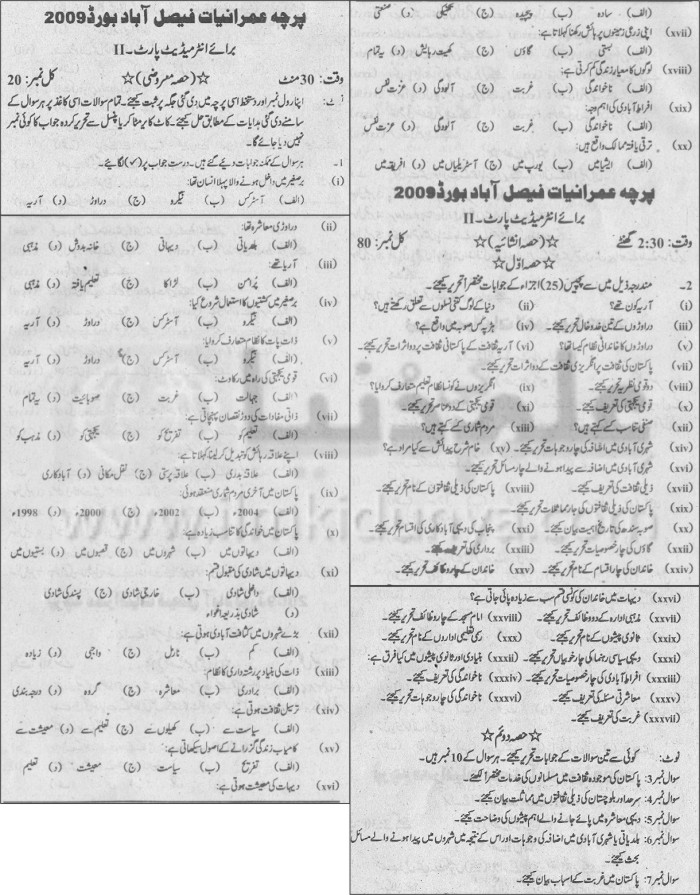 پرچہ عمرانیات فیصل آباد بورڈ 2009
برائے انٹرمیڈیٹ پارٹ۔ II
وقت: 30 منٹ ☆(حصہ معروضی)☆ کل نمبر: 20
نوٹ: اپنا رول نمبر اور دستخط اسی پرچہ میں دی گئی جگہ پر ثبت کیجئے۔ تمام سوالات اسی کاغذ پر ہر سوال کے
سامنے دی گئی ہدایات کے مطابق حل کیجئے۔ کاٹ کا یر مٹا کر یا پنسل سے تحریر کردہ جواب کا کوئی نمبر
نہیں دیا جائے گا۔
۱۔ ہر سوال کے ممکنہ جوابات دیئے گئے ہیں۔ درست جواب پر (✓) لگائیے۔
(i) برصغیر میں داخل ہونے والا پہلا انسان تھا:
(الف) آسٹرکس (ب) نیگرہ (ج) دراوڑ (د) آریہ
(ii) دراوڑی معاشرہ تھا:
(الف) بلدیاتی (ب) دیہاتی (ج) خانہ بدوش (د) مذہبی
(iii) آریا تھے:
(الف) پرامن (ب) لڑاکا (ج) تعلیم یافتہ (د) مذہبی
(iv) برصغیر میں کشتیوں کا استعمال شروع کیا:
(الف) نیگرہ (ب) آسٹرکس (ج) دراوڑ (د) آریہ
(v) ذات پات کا نظام متعارف کروایا:
(الف) نیگرہ (ب) آسٹرکس (ج) دراوڑ (د) آریہ
(vi) قومی یکجہتی کی راہ میں رکاوٹ:
(الف) جہالت (ب) غربت (ج) صوبائیت (د) یہ تمام
(vii) ذاتی مفادات کی دوڑ نقصان پہنچاتی ہے:
(الف) تعلیم کو (ب) تفریح کو (ج) یکجہتی کو (د) مذہب کو
(viii) اپنے علاقہ رہائش کو تبدیل کر لینا کہلاتا ہے:
(الف) علاقہ بدری (ب) علاقہ پرستی (ج) نقل مکانی (د) آبادکاری
(ix) پاکستان میں آخری مردم شماری منعقد ہوئی:
(الف) 2004ء (ب) 2002ء (ج) 2000ء (د) 1998ء
(x) پاکستان میں خواندگی کا تناسب زیادہ ہے:
(الف) دیہاتوں میں (ب) شہروں میں (ج) قصبوں میں (د) بستیوں میں
(xi) دیہاتوں میں شادی کی مقبول قسم:
(الف) داخلی شادی (ب) خارجی شادی (ج) پسند کی شادی
(د) شادی بذریعہ اغواء
(xii) بڑے شہروں میں کثافت آبادی ہوتی ہے:
(الف) کم (ب) نارمل (ج) واجبی (د) زیادہ
(xiii) ذات کی بنیاد پر رشتہ داری کا نظام:
(الف) برادری (ب) معاشرہ (ج) گروہ (د) درجہ بندی
(xiv) ترسیل ثقافت ہوتی ہے:
(الف) سیاست سے (ب) کھیلوں سے (ج) تعلیم سے (د) معیشت سے
(xv) کامیاب زندگی گزارنے کے اصول سیکھاتی ہے:
(الف) تفریح (ب) سیاست (ج) معیشت (د) تعلیم
(xvi) دیہات کی معیشت ہوتی ہے:
(الف) سادہ (ب) پیچیدہ (ج) تحقیقی (د) صنعتی
(xvii) اپنی زرعی زمینوں پر رہائش رکھنا کہلاتا ہے:
(الف) بستی (ب) گاؤں (ج) کھیت رہائش (د) یہ تمام
(xviii) لوگوں کا معیار زندگی کم کرتی ہے:
(الف) ناخواندگی (ب) غربت (ج) آلودگی (د) عزت نفس
(xix) افراط آبادی کی اہم وجہ:
(الف) ناخواندگی (ب) غربت (ج) آلودگی (د) عزت نفس
(xx) ترقی یافتہ ممالک واقع ہیں:
(الف) ایشیا میں (ب) یورپ میں (ج) آسٹریلیا میں (د) افریقہ میں
پرچہ عمرانیات فیصل آباد بورڈ 2009
برائے انٹرمیڈیٹ پارٹ۔ II
وقت: 2:30 گھنٹے ☆(حصہ انشائیہ)☆ کل نمبر: 80
☆ حصہ اوّل ☆
2۔ مندرجہ ذیل میں سے پچیس (25) اجزاء کے جوابات مختصراً تحریر کیجئے۔
(i) آریہ کون تھے؟ (ii) دنیا کے لوگ کتنی نسلوں سے تعلق رکھتے ہیں؟
(iii) دراوڑوں کے تین خدوخال تحریر کیجئے۔ (iv) ہڑپہ کس صوبہ میں واقع ہے؟
(v) دراوڑوں کا خاندانی نظام کیسا تھا؟ (vi) آریہ ثقافت کے پاکستانی ثقافت پر دو اثرات تحریر کیجئے۔
(vii) پاکستان کی ثقافت پر انگریزی ثقافت کے دو اثرات تحریر کیجئے۔
(viii) دو قومی نظریہ تحریر کیجئے۔ (ix) انگریزوں نے کونسا نظام تعلیم متعارف کروایا؟
(x) قومی یکجہتی کی تعریف کیجئے۔ (xi) قومی یکجہتی کے دو عناصر تحریر کیجئے۔
(xii) صنفی تناسب کسے کہتے ہیں؟ (xiii) مردم شماری کسے کہتے ہیں؟
(xiv) شہری آبادی میں اضافہ کی چار وجوہات تحریر کیجئے۔ (xv) خام شرح پیدائش سے کیا مراد ہے؟
(xvi) شہری آبادی میں اضافہ سے پیدا ہونے والے چار مسائل تحریر کیجئے۔
(xvii) ذیلی ثقافت کی تعریف کیجئے۔ (xviii) پاکستان کی ذیلی ثقافتوں کے نام تحریر کیجئے۔
(xix) پاکستان کی ذیلی ثقافتوں کی چار مماثلات تحریر کیجئے۔
(xx) صوبہ سندھ کی تاریخی اہمیت بیان کیجئے۔ (xxi) پنجاب کی دیہی آبادکاری کی اقسام تحریر کیجئے۔
(xxii) گاؤں کی چار خصوصیات تحریر کیجئے۔ (xxiii) برادری کی تعریف کیجئے۔
(xxiv) خاندان کی چار اقسام کے نام تحریر کیجئے۔ (xxv) خاندان کے چار وظائف تحریر کیجئے۔
(xxvi) دیہات میں خاندان کی کونسی قسم سب سے زیادہ پائی جاتی ہے؟
(xxvii) مذہبی ادارہ کے دو وظائف تحریر کیجئے۔ (xxviii) امام مسجد کے چار وظائف تحریر کیجئے۔
(xxix) ثانوی پیشوں کے نام تحریر کیجئے۔ (xxx) رسمی تعلیمی اداروں کے نام تحریر کیجئے۔
(xxxi) دیہی سیاسی رہنما کی چار خوبیاں تحریر کیجئے۔ (xxxii) بنیادی اور ثانوی پیشوں میں کیا فرق ہے؟
(xxxiii) افراط آبادی کی چار خصوصیات تحریر کیجئے۔ (xxxiv) ناخواندگی کی تعریف کیجئے۔
(xxxv) معاشرتی مسئلہ کی تعریف کیجئے۔ (xxxvi) ناخواندگی کی چار وجوہات تحریر کیجئے۔
(xxxvii) غربت کی تعریف کیجئے۔
☆ حصہ دوئم ☆
نوٹ: کوئی سے تین سوالات کے جوابات تحریر کیجئے۔ ہر سوال کے 10 نمبر ہیں۔
سوال نمبر 3: پاکستان کی موجودہ ثقافت میں مسلمانوں کی خدمات مختصراً لکھئے۔
سوال نمبر 4: سرحد اور بلوچستان کی ذیلی ثقافتوں میں مماثلت بیان کیجئے۔
سوال نمبر 5: دیہی معاشرہ میں پائے جانے والے اہم پیشوں کی وضاحت کیجئے۔
سوال نمبر 6: بلدیاتی یا شہری آبادی میں اضافہ کی وجوہات اور اس کے نتیجہ میں شہروں میں پیدا ہونے والے مسائل
بحث کیجئے۔
سوال نمبر 7: پاکستان میں غربت کے اسباب بیان کیجئے۔